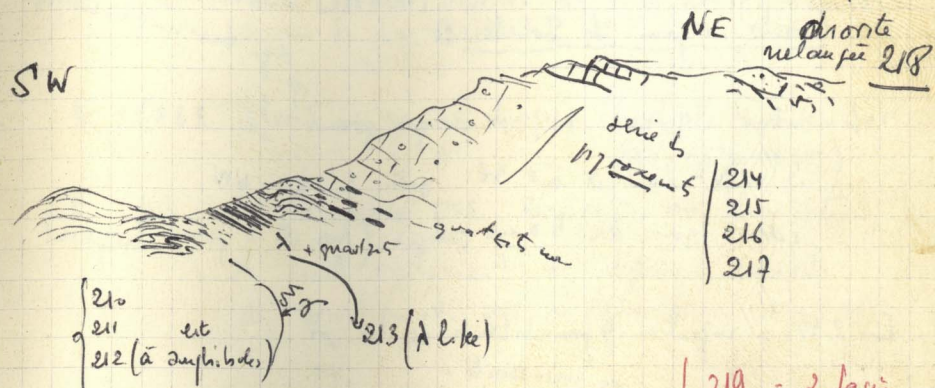 NE
diorite
mélangée 218
SW
série des
pyroxenites
214
215
216
217
quartzites
λ + quartz
210
211 et
212 (à amphiboles)
213 (λ litée)
219